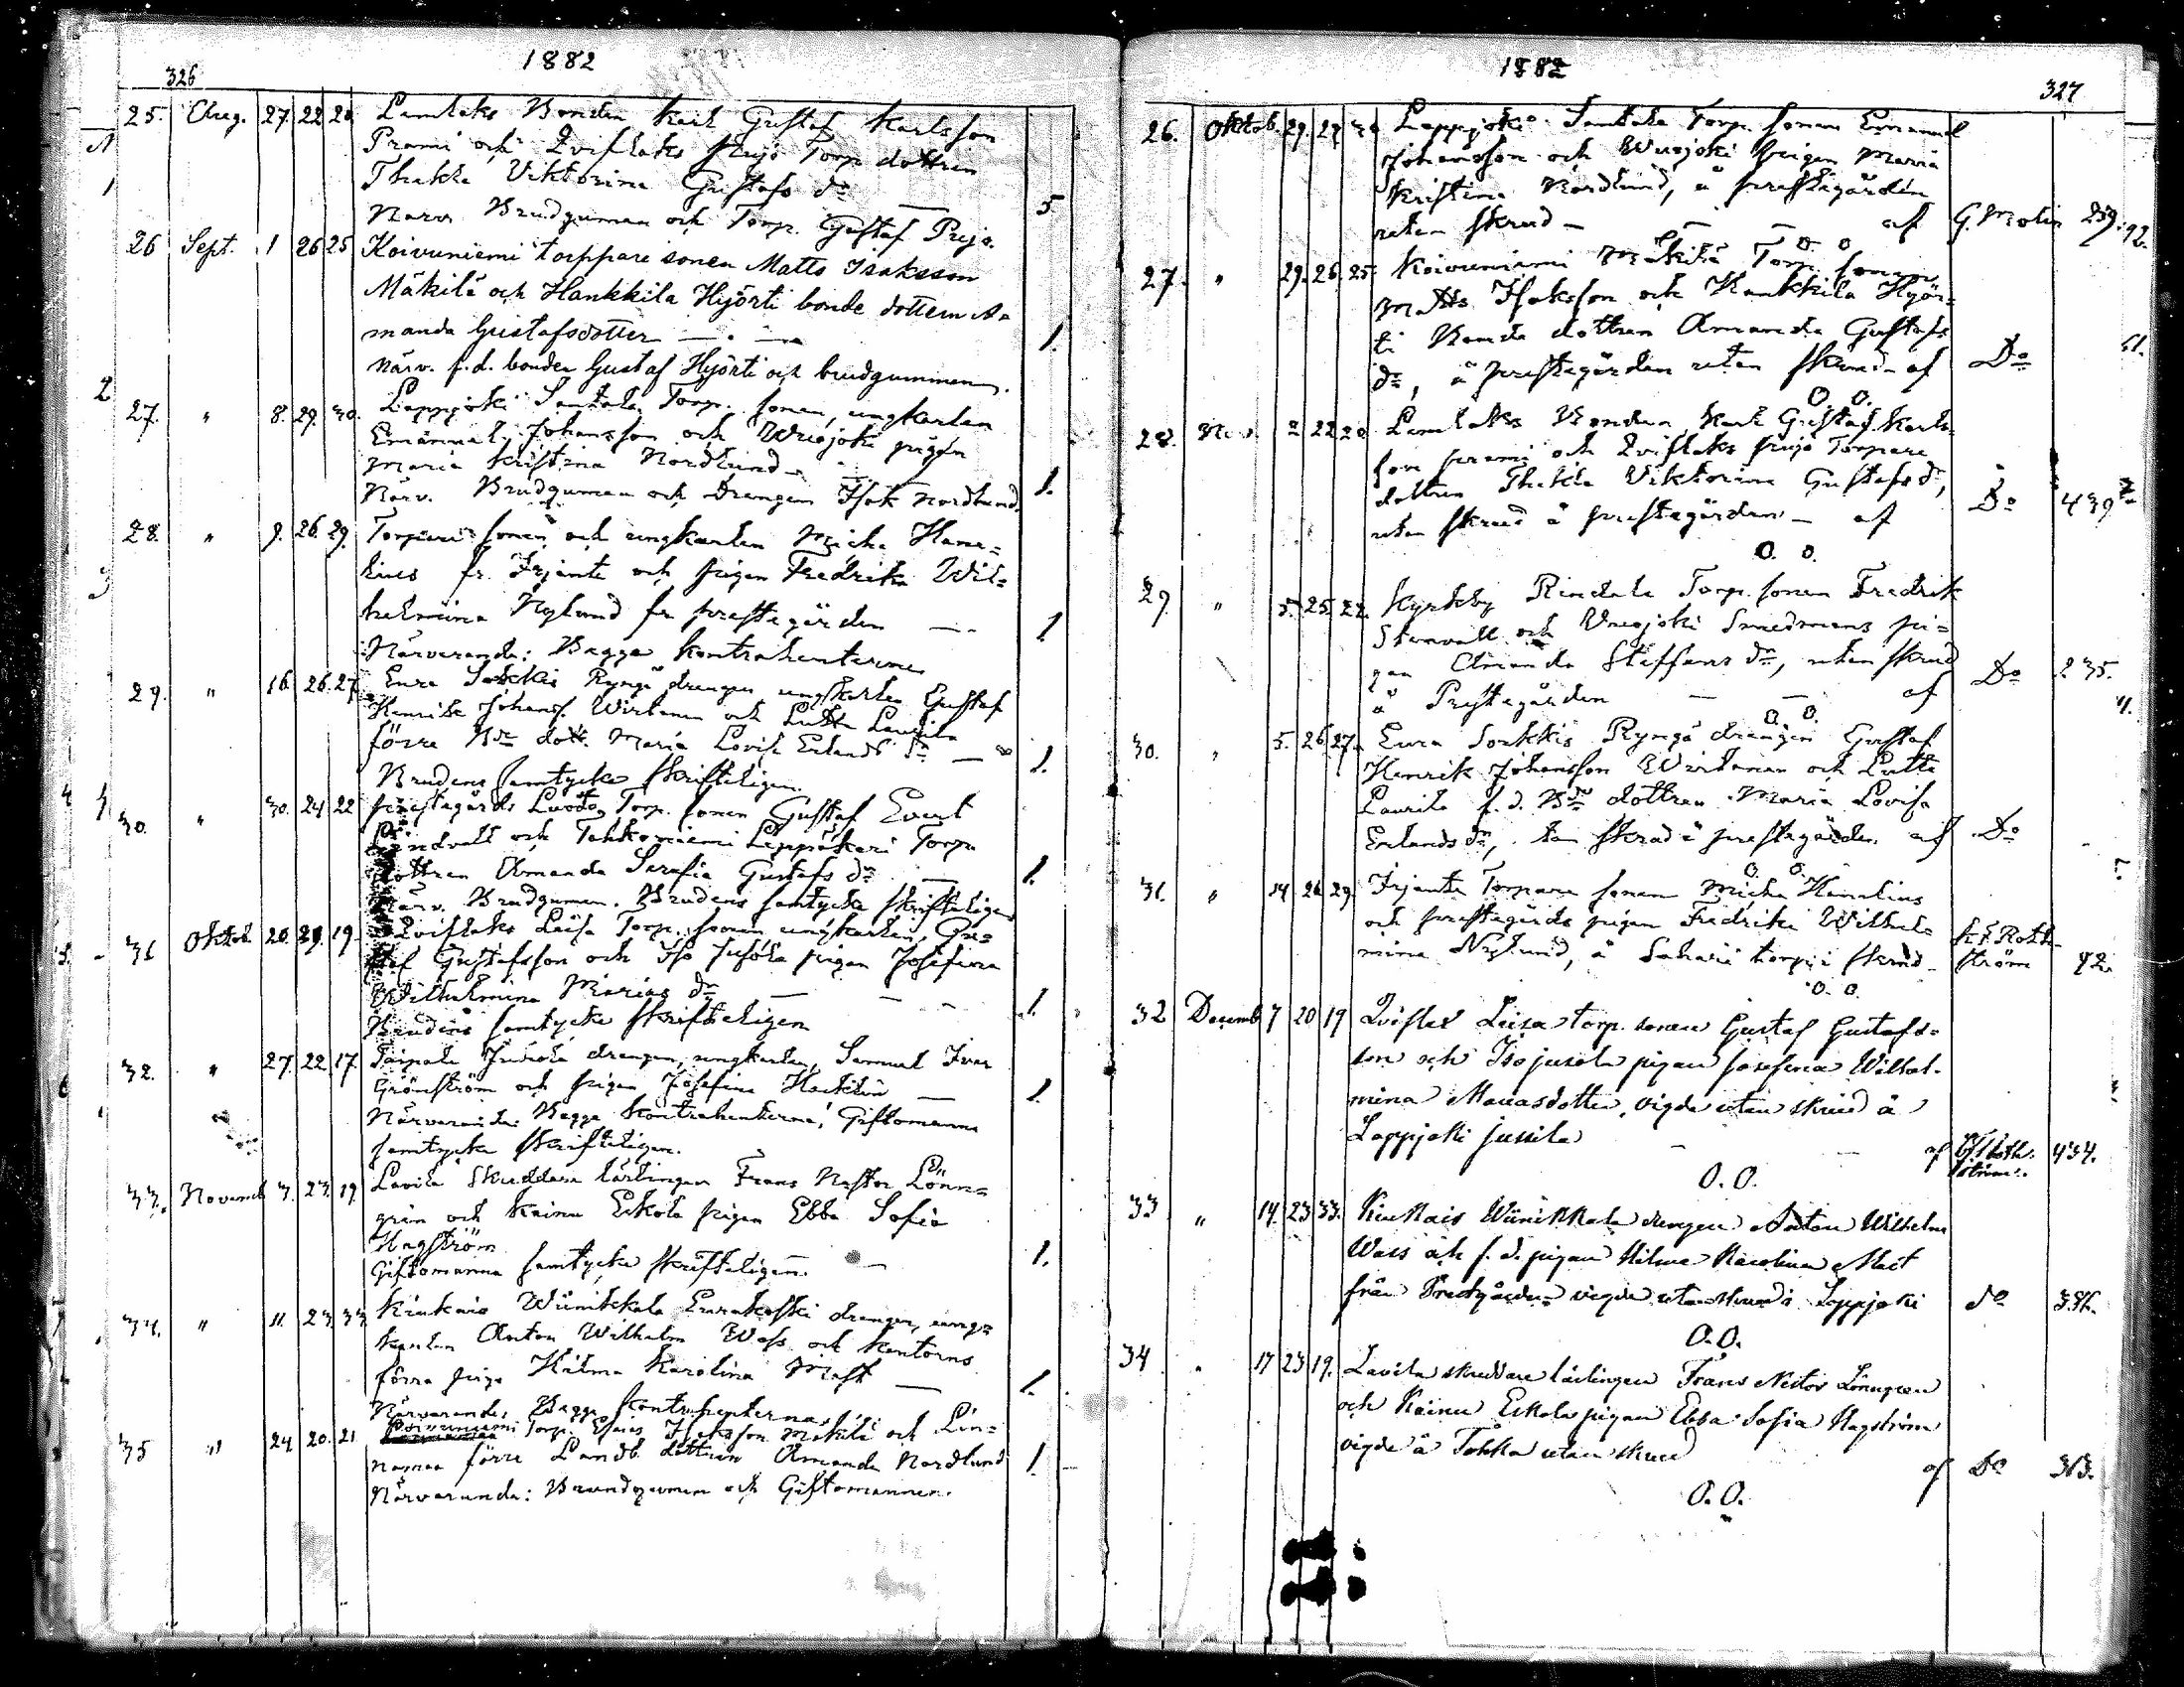 1882
326
25. Aug. 27. 22 20 Lamlaks Bonden Karl Gustaf Karlsson
Prami och Qvislaks Prijo Torp dottren
Thekla Viktorina Gustafs dr
Narv. Brudguman och Torp. Gustaf Prijo. 5
26 Sept. 1 26 25 Koivuniemi torppare sonen Matts Isaksson
Mäkilä och Hankkila Hyörti bonde dottern A-
manda Gustafsdotter 1.
närv. f.d. bonden Gustaf Hyörti och brudgummen.
27. " 8. 29. 30. Lappjoki Santala Torp. sonen, ungkarlen
Emanuel Johansson och Wuojoki pigan
Maria Kristina Nordlund 1.
Närv. Brudguman och Drengen Isak Nordlund.
28. " 9. 26. 29. Torpare sonen och ungkarlen Micke Hame-
lius fr. Irjante och pigan Fredrika Wil-
helmina Nylund fr prestegården 1
Närvarande: Bägge Kontrahenterne
29. " 16. 26. 27. Eura Sorkkis Ryngö drengen ungkarlen Gustaf
Henrik Johans. Wirtanen och Lutta Laurila
förre Bde dott. Maria Lovisa Erlands dr 1.
Brudens samtycke skrifteligen.
30. " 30. 24 22 prestegårds Luoto Torp. sonen Gustaf Evert
Lindvall och Tahkoniemi Leppäkari Torp.
dottren Amanda Serafia Gustafs dr 1.
Närv. Brudguman. Brudens samtycke skrifteligen
31 Oktob. 20. 29. 19. Qvislaks Läisa Torp. sonen ungkarlen, Gu-
staf Gustafsson och Iso Jusola pigan Josefina
Wilhelmina Marias dr 1.
Brudens samtycke skrifteligen
32. " 27. 22. 17. Taipale Jusola drengen, ungkarlen, Samuel Ivar
Grönström och pigan Josefina Hacklin 1.
Närvarande: Bägge Kontrahenterna, Giftomanna
samtycke skrifteligen.
33. Novemb 3. 23. 19. Lavila Skräddare lärlingen Frans Nestor Lönn-
gren och Kainu Eskola pigan Ebba Sofia
Hagström 1.
Giftomanna samtycke skrifteligen.
34. " 11. 23. 33 Kiukais Wiinikkala Eurakoski drengen, ung-
karlen Anton Wilhelm Wass och Kantorns
förra piga Hilma Karolina Mast 1.
Närvarande Bägge Kontrahenterna
35 " 24 20. 21 Koivuniemi Torp. Esaias Isaksson Mäkilä och Lin-
namaa förre Landb. dottren Amanda Nordlund 1.
Närvarande: Brudguman och Giftomannen.
1882
327
26. Oktob. 29. 29 30 Lappjoki Santala Torp. sonen Emanuel
Johansson och Wuojoki pigan Maria
Kristina Nordlund, å prestegården
utan skrud af G. Molin 259.
O. O.
27. " 29. 26. 25. Koivuniemi Mäkilä Torp. sonen
Matts Isaksson och Hankkila Hyör-
ti Bonde dottren Amanda Gustafs
dr, å prestegården utan skrud af Do
O. O.
28. Nov 2 22 20 Lamlaks Bonden Karl Gustaf Karls-
son prami och Qvislaks prijo Torpare
dottren Thekla Viktorina Gustafs dr,
utan skrud å prestegården af Do 439
O. O.
29 " 5. 25. 22. Kyrkby Rindala Torp. sonen Fredrik
Stenvall och Wuojoki Smedmans pi-
gan Amanda Steffans dr, utan skrud
å Prestegården af Do 235.
O. O.
30. " 5. 26. 27. Eura Sorkkis Ryngö drengen Gustaf
Henrik Johansson Wirtanen och Lutta
Laurila f. d. Bde dottren Maria Lovisa
Erlands dr, utan skrud å prestegården af Do
O. O.
31. " 14 26 29. Irjante Torpare sonen Micke Hamelius
och prestegårds pigan Fredrika Wilhel-
mina Nylund, å Sahari torp i skrud K F Roth-
ström 92.
O. O.
32 Decemb 7 20 19 Qvislax Leisa torp. sonen Gustaf Gustafs-
son och Isojusola pigan Josefina Wilhel-
mina Mariasdotter, vigda utan skrud å
Lappjoki Jussila af Roth-
ström. 434.
O. O.
33 " 14. 23 33. Kiukais Wiinikkala drengen Anton Wilhelm
Wass och f. d. pigan Hilma Karolina Mast
från Prestgården vigde utan skrud i Lappjoki do 336.
O. O.
34 " 17 23 19. Lavila skreddare lärlingen Frans Nestor Lönngren
och Kainu Eskola pigan Ebba Sofia Hagström
vigde å Tokka utan skrud
af Do 313.
O. O.